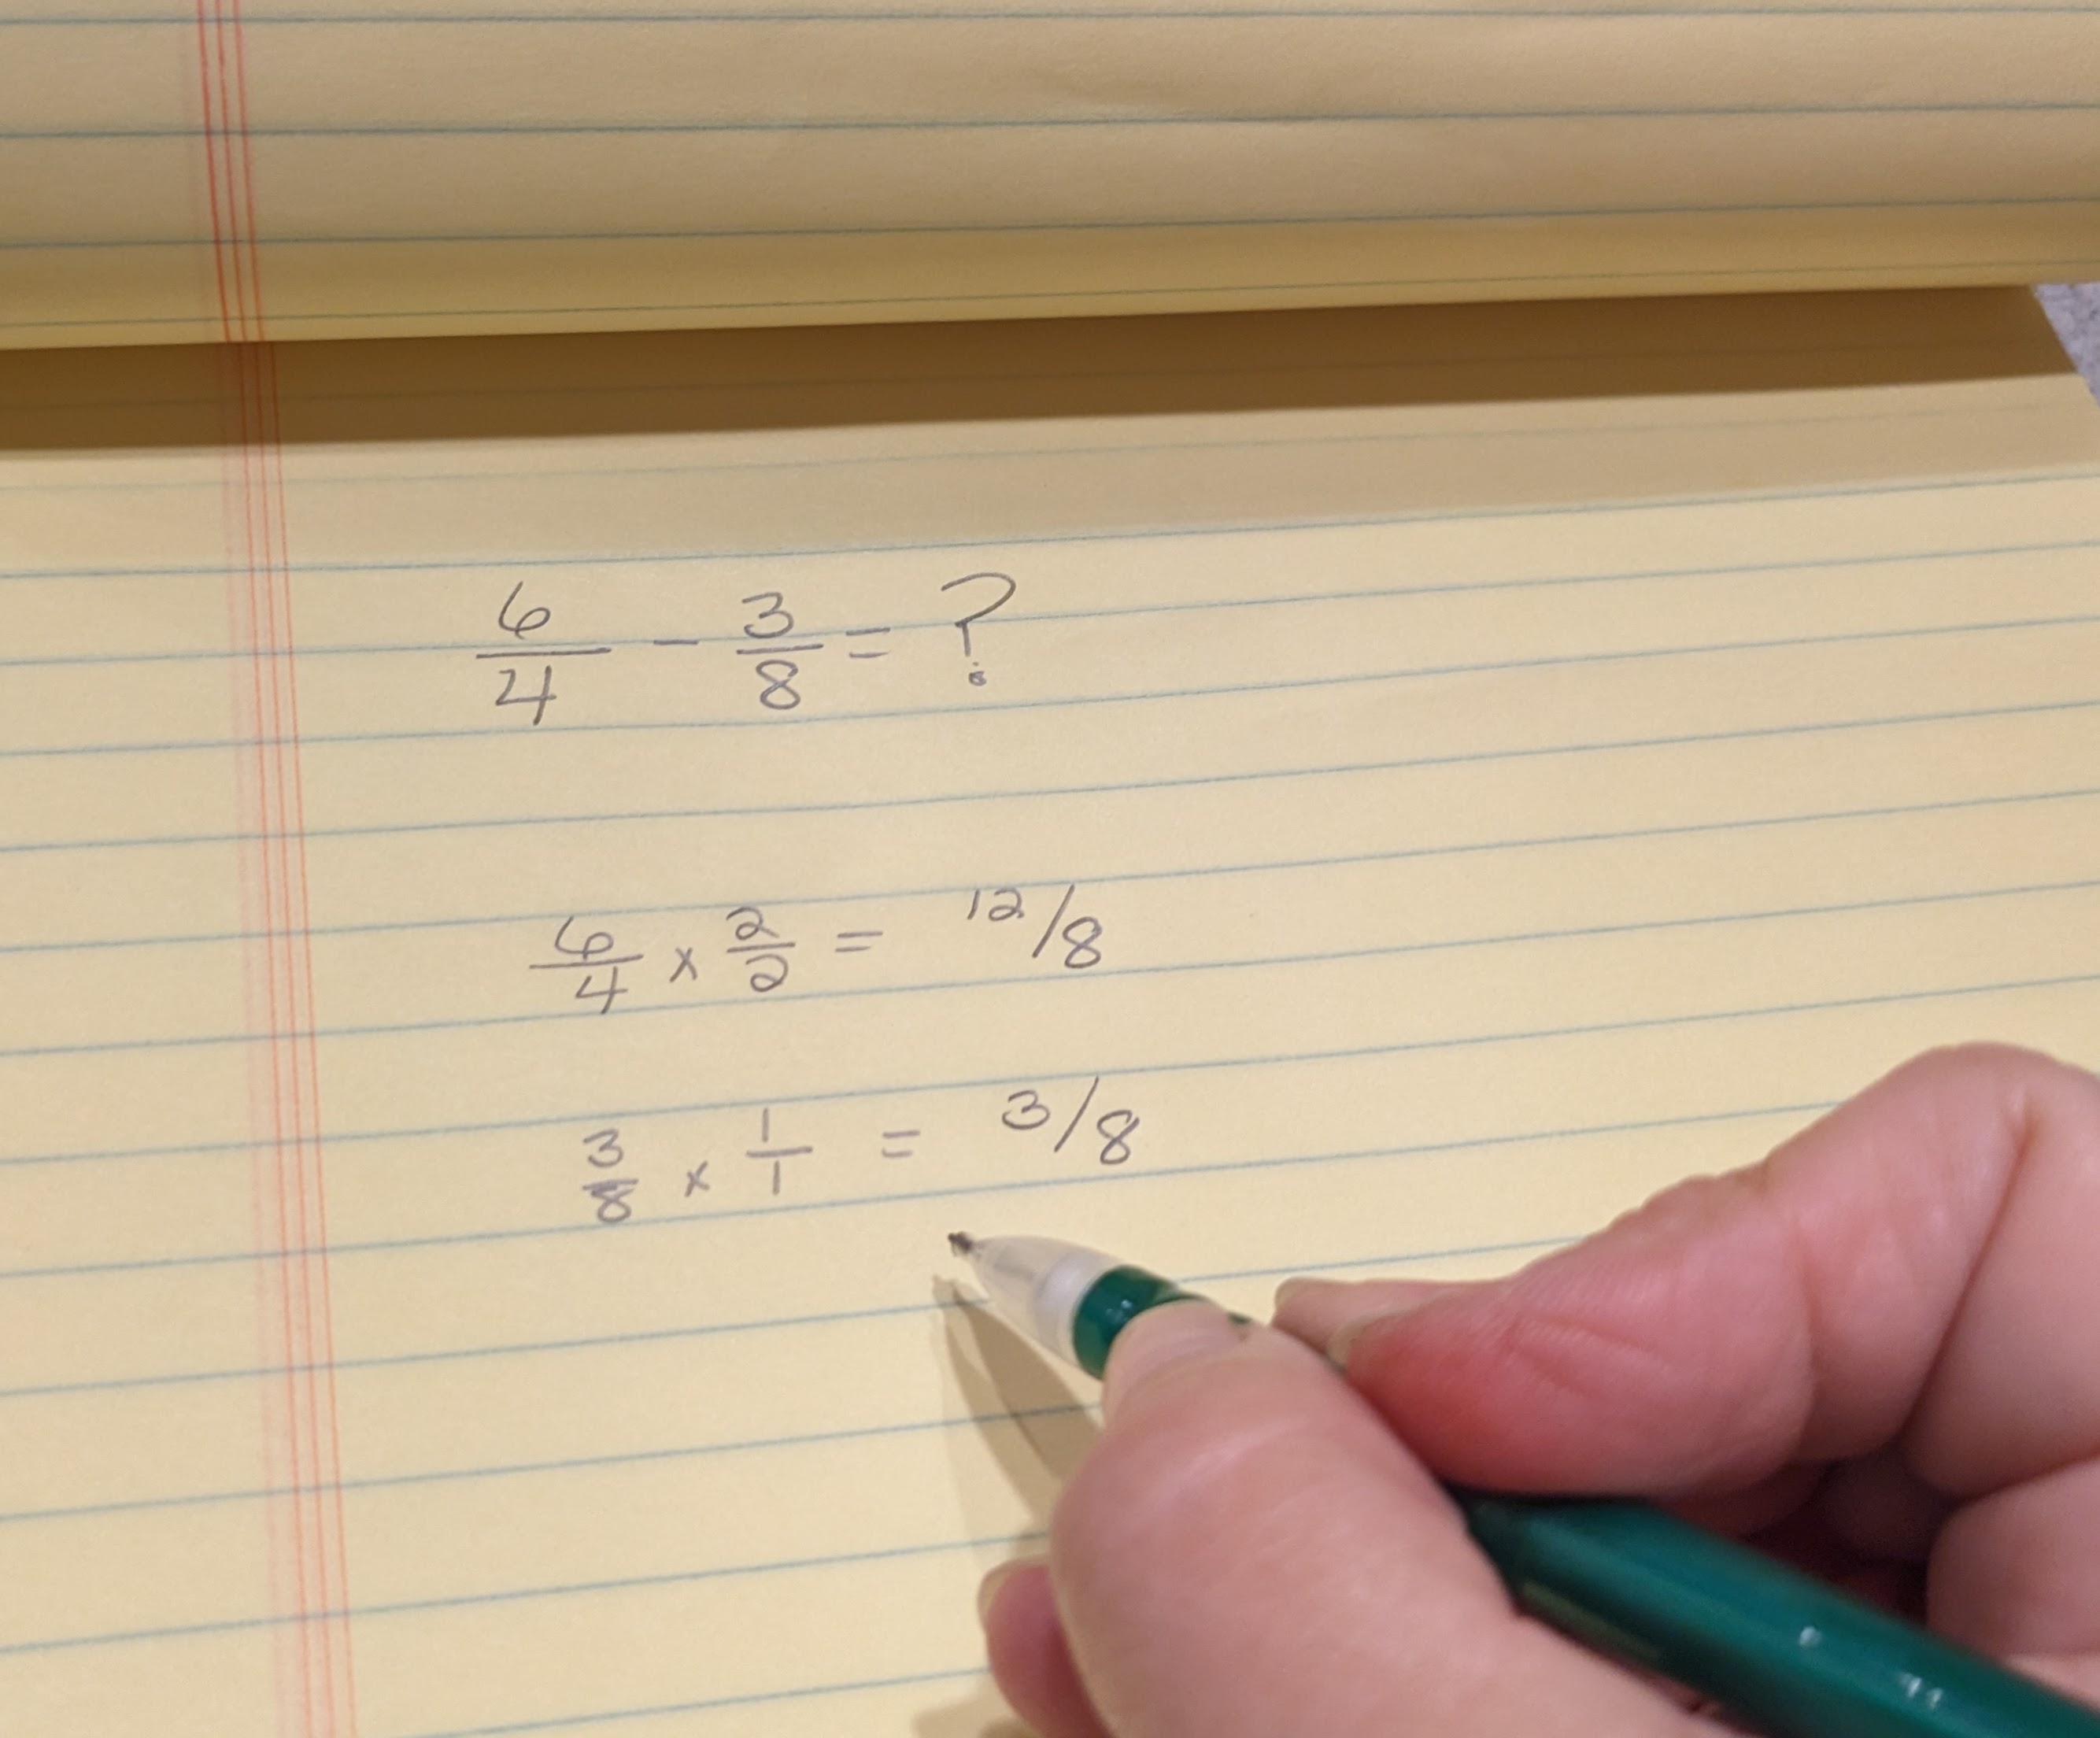 6/4 - 3/8 = ?
6/4 x 2/2 = 12/8
3/8 x 1/1 = 3/8